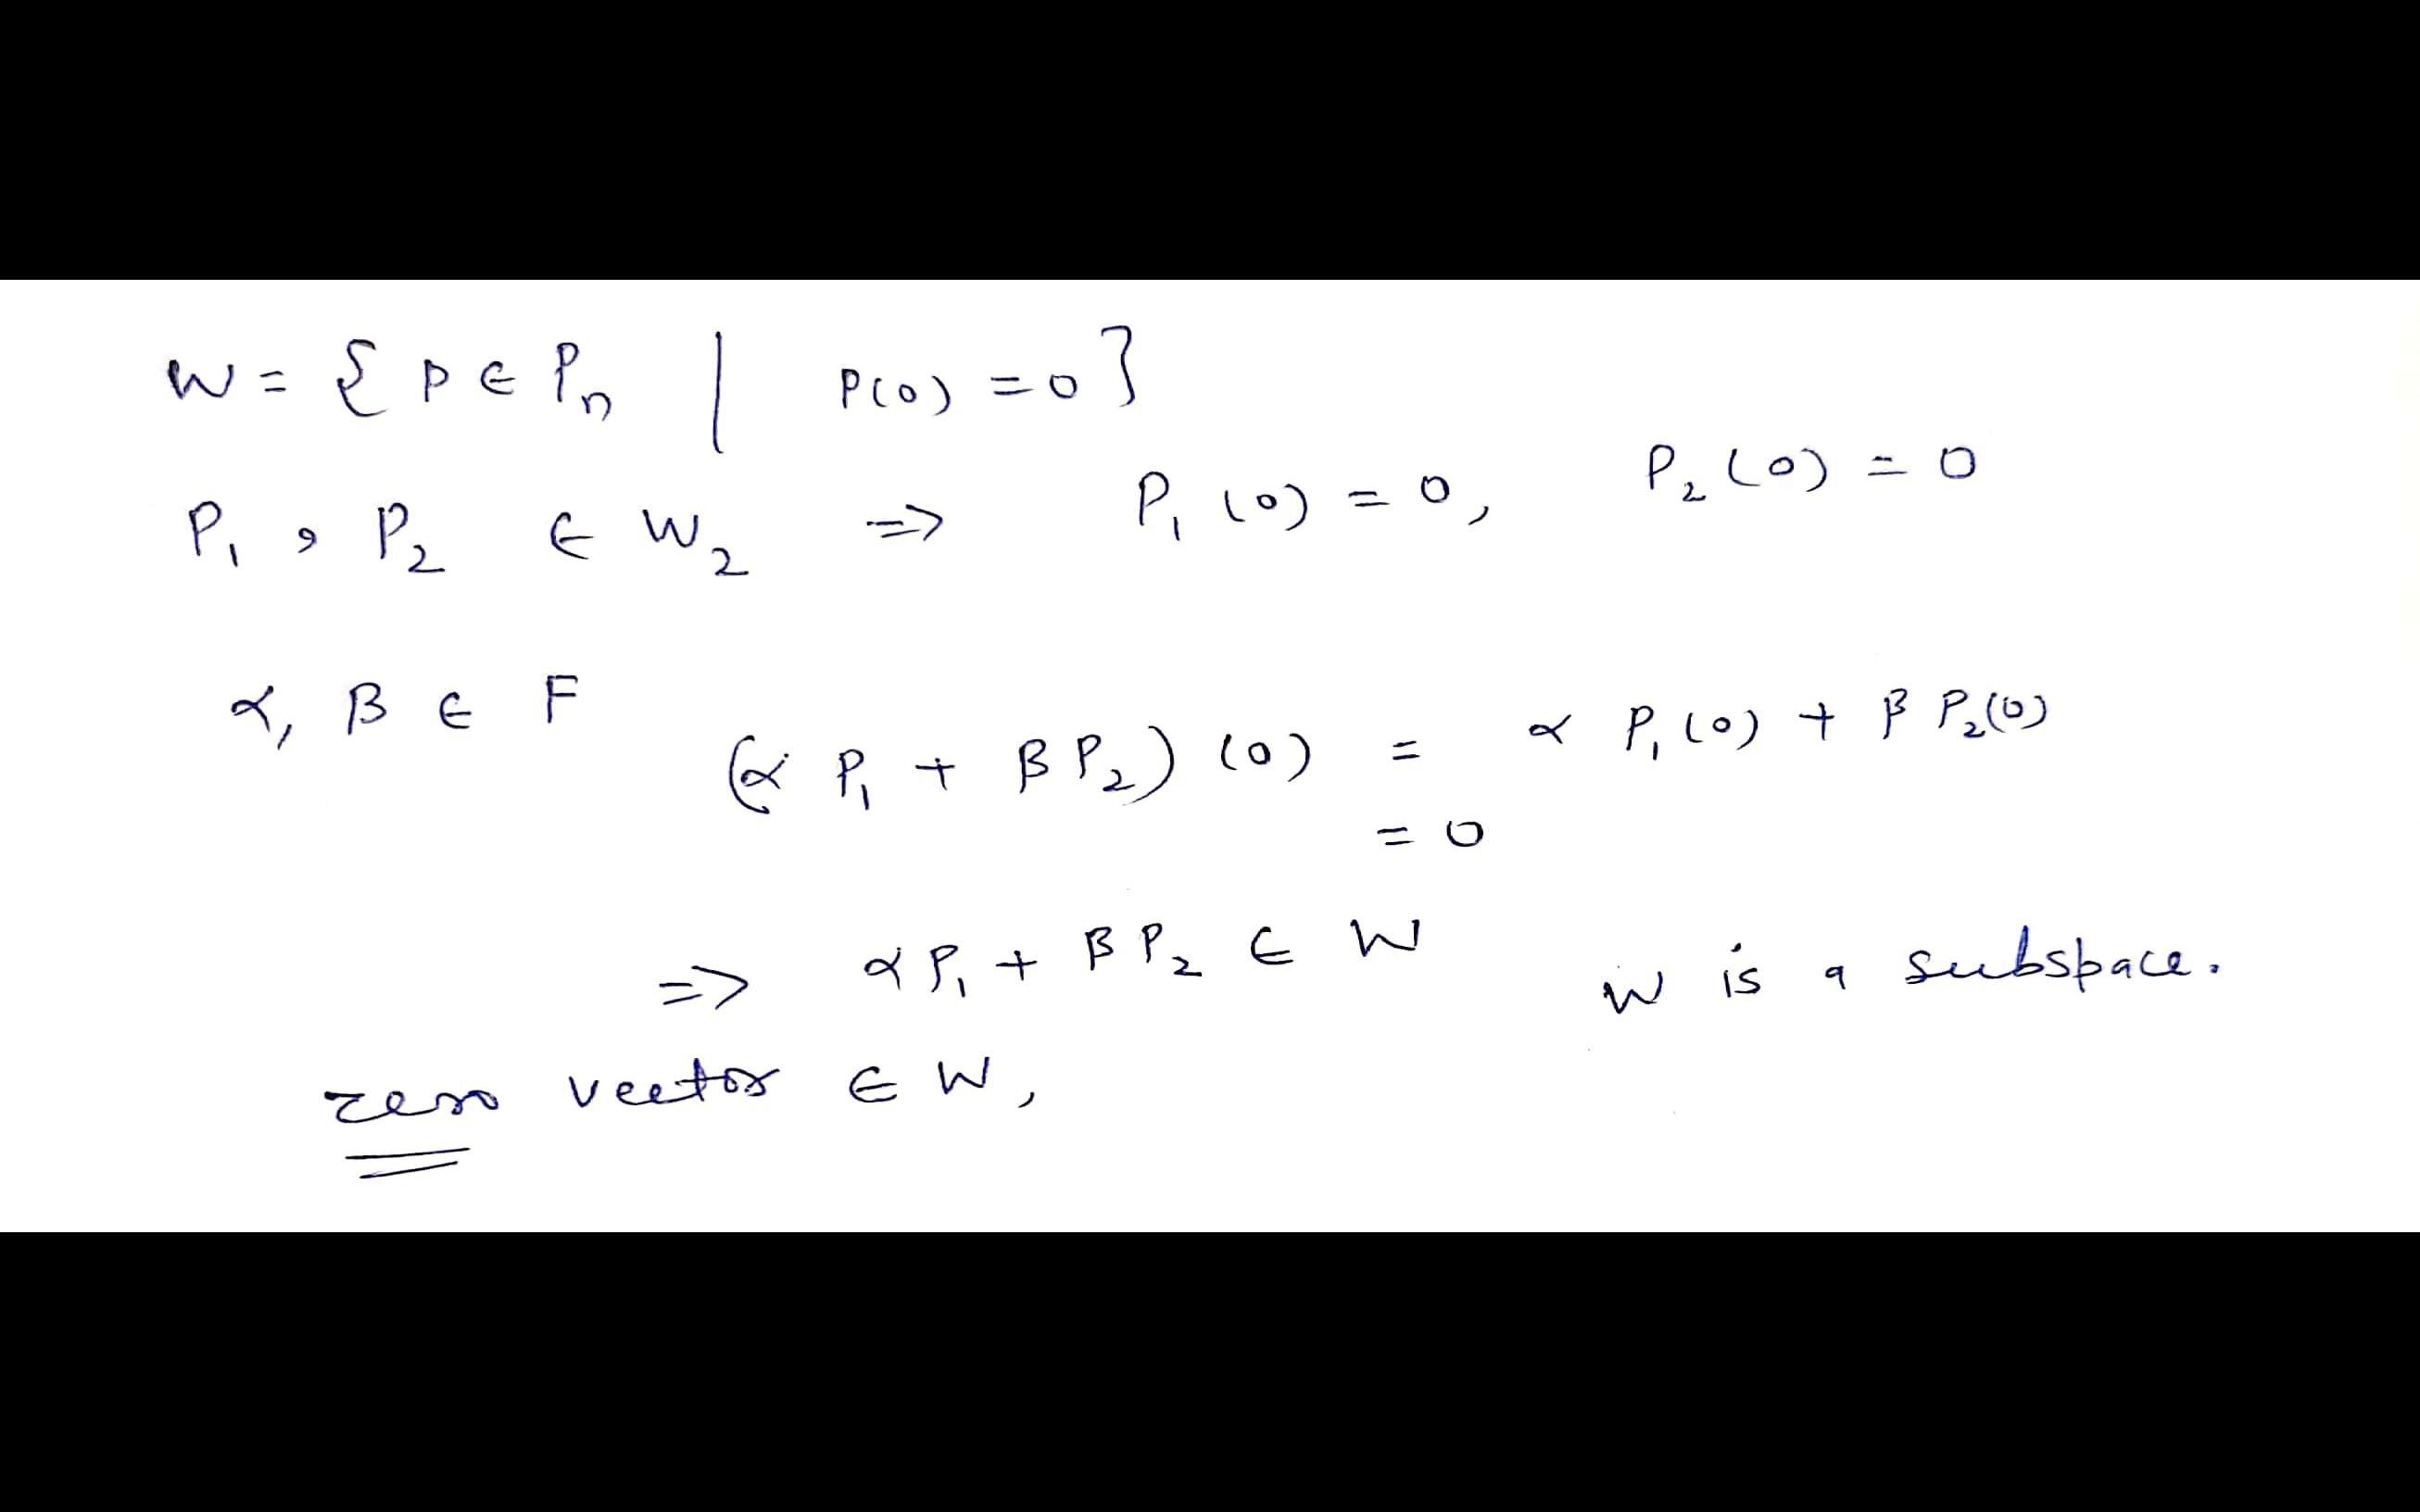 W = { P ∈ Pn | P(0) = 0 }
P₁, P₂ ∈ W₂ => P₁(0) = 0, P₂(0) = 0
α, β ∈ F
(α P₁ + β P₂)(0) = α P₁(0) + β P₂(0)
= 0
=> α P₁ + β P₂ ∈ W W is a subspace.
zero vector ∈ W,